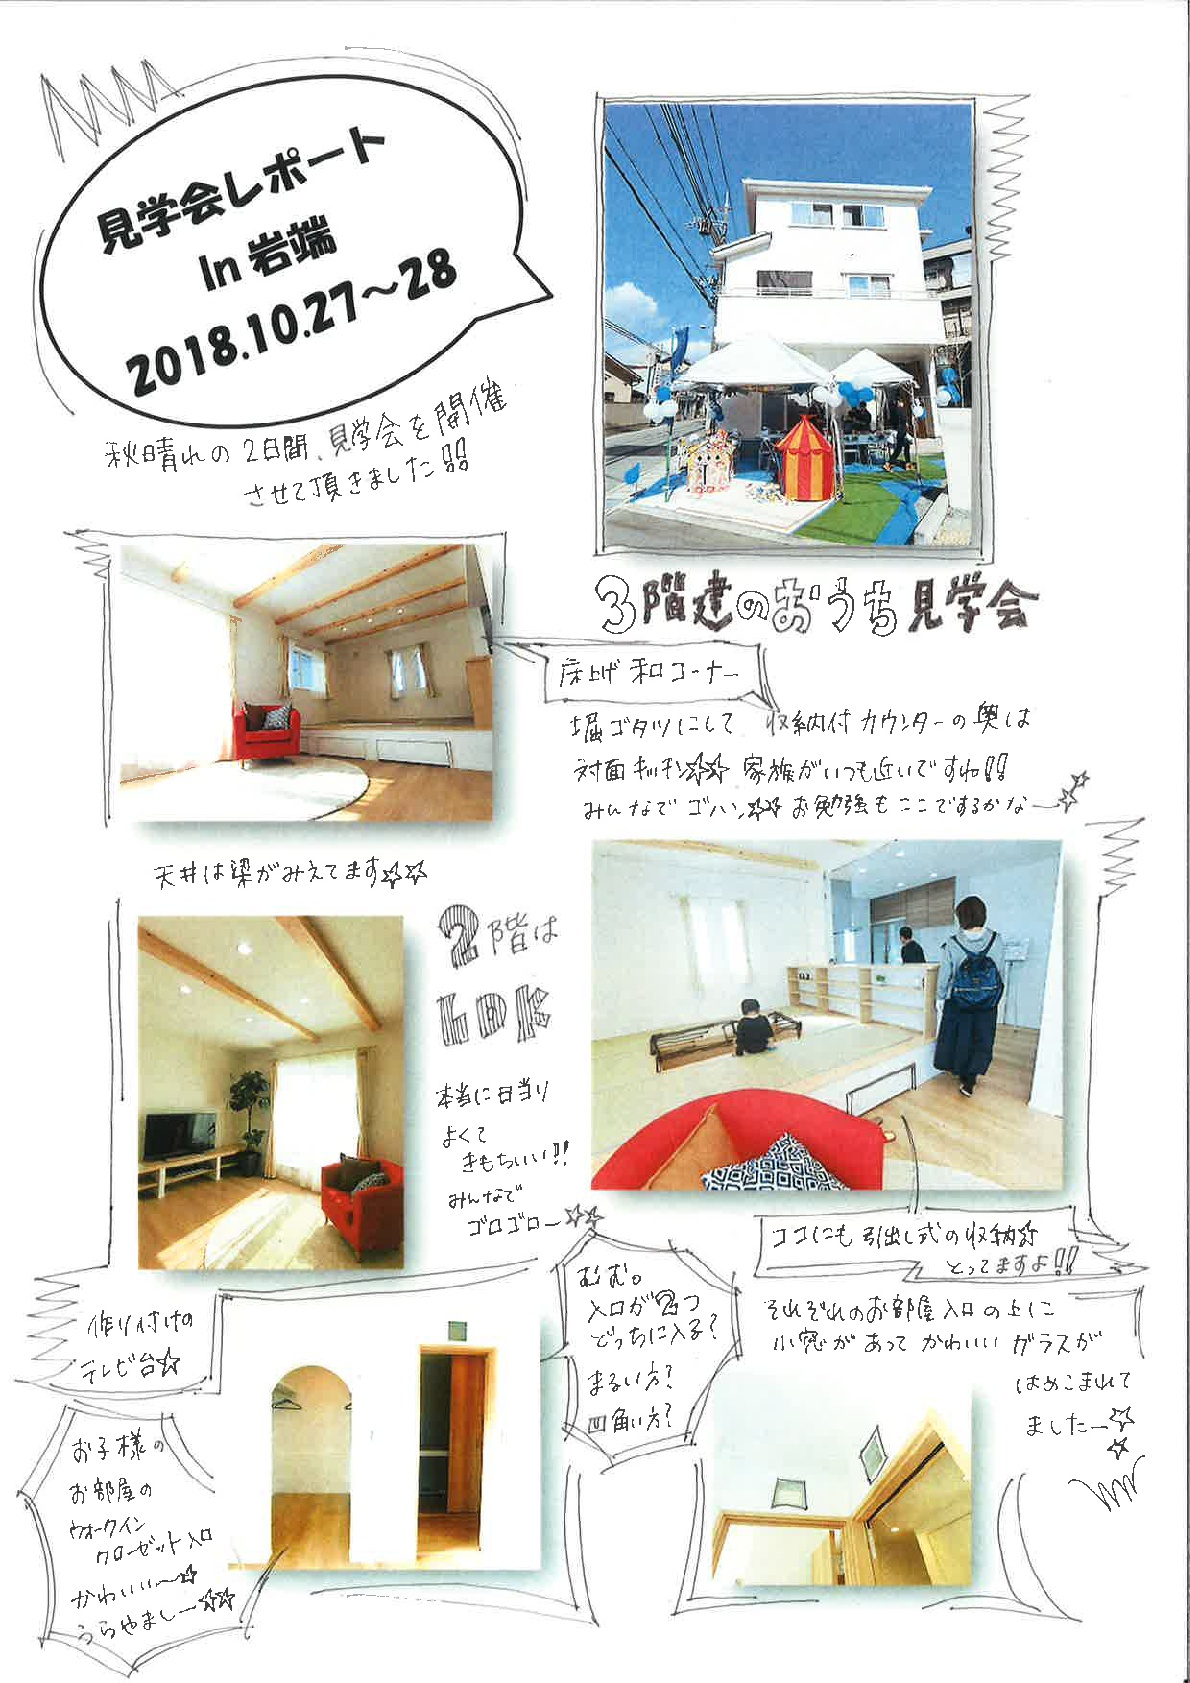 見学会レポート
In 岩端
2018.10.27～28
秋晴れの2日間、見学会を開催
させて頂きました!!
3階建のおうち見学会
床上げ 和コーナー
堀ゴタツにして 収納付カウンターの奥は
対面キッチン☆☆ 家族がいつも近いですね!!
みんなでゴハン☆☆ お勉強もここでするかな―☆☆
天井は梁がみえてます☆☆
2階は
LDK
本当に日当り
よくて
きもちいい!!
みんなで
ゴロゴロー☆☆
ココにも引出し式の収納が
とってますよ!!
作り付けの
テレビ台☆
むむ。
入口が2つ
どっちに入る?
まるい方?
四角い方?
それぞれのお部屋入口の上に
小窓があってかわいいガラスが
はめこまれて
ました―☆
☆
お子様の
お部屋の
ウォークイン
クローゼット入口
かわいい～☆
うらやまし―☆☆